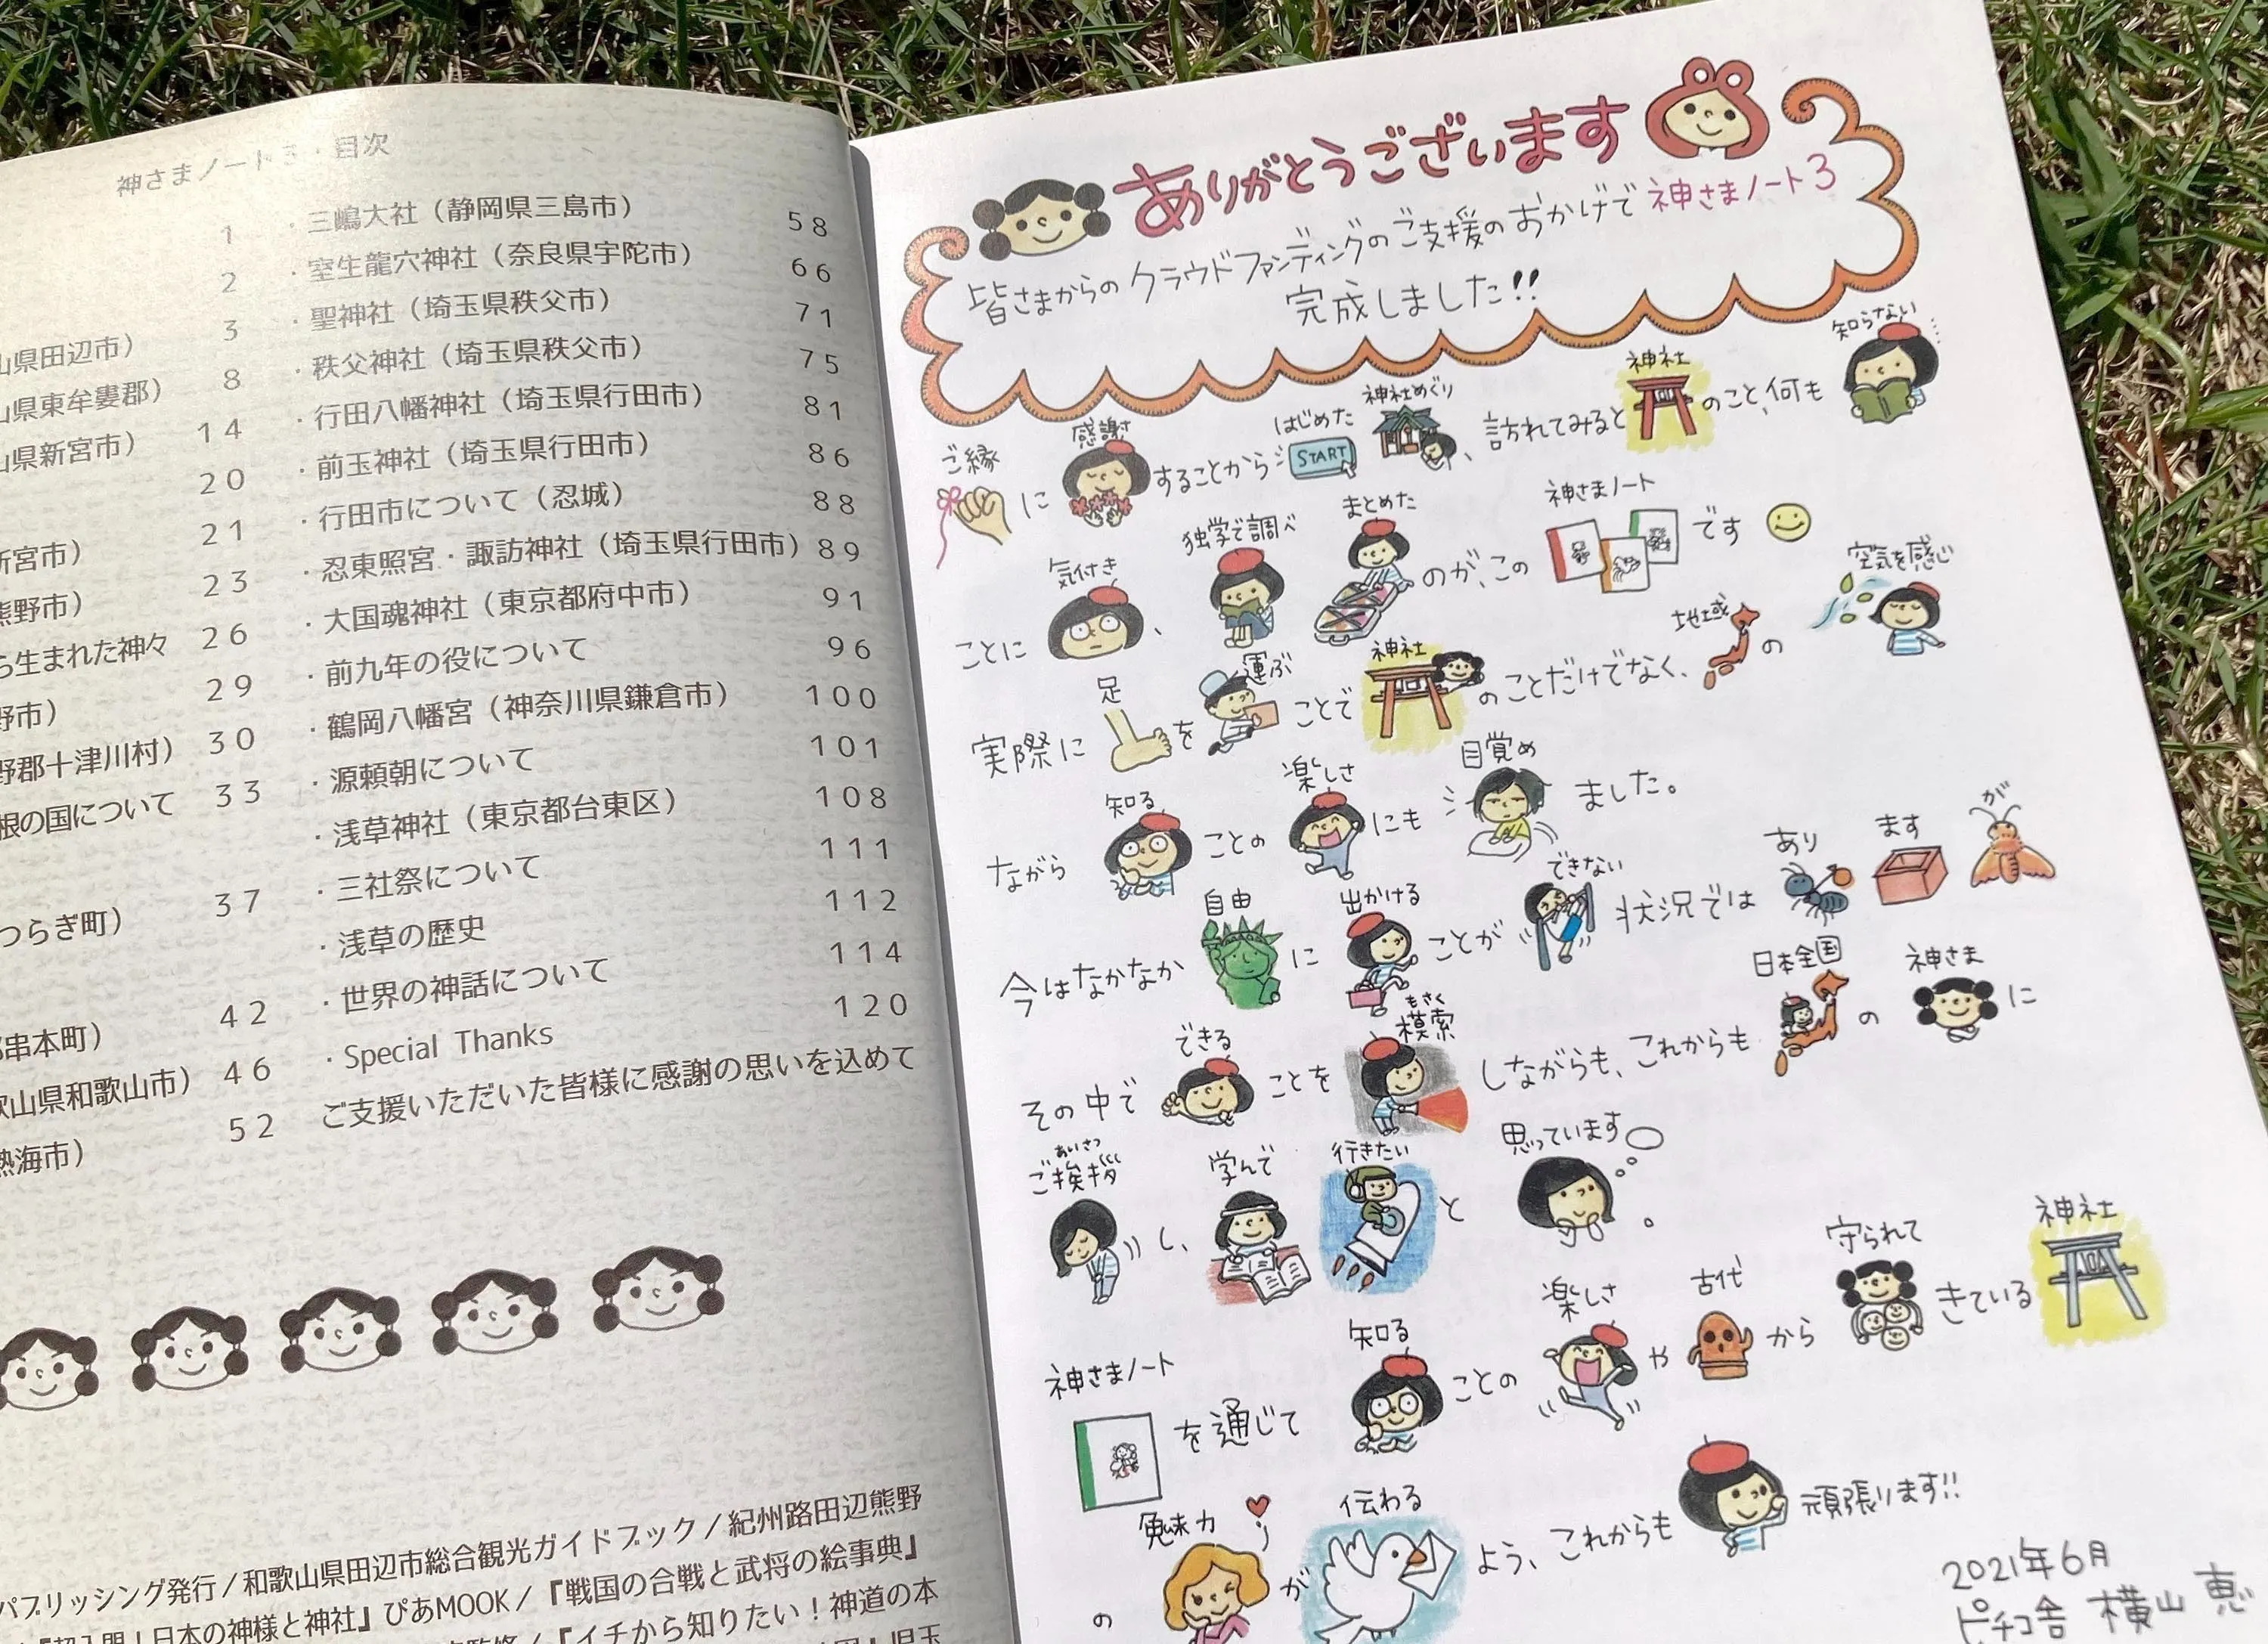 神さまノート3・目次
1
2
山県田辺市) 3
山県東牟婁郡) 8
山県新宮市) 14
20
新宮市) 21
熊野市) 23
ら生まれた神々 26
野市) 29
野郡十津川村) 30
根の国について 33
つらぎ町) 37
串本町) 42
歌山県和歌山市) 46
熱海市) 52
・三嶋大社(静岡県三島市) 58
・室生龍穴神社(奈良県宇陀市) 66
・聖神社(埼玉県秩父市) 71
・秩父神社(埼玉県秩父市) 75
・行田八幡神社(埼玉県行田市) 81
・前玉神社(埼玉県行田市) 86
・行田市について(忍城) 88
・忍東照宮・諏訪神社(埼玉県行田市) 89
・大国魂神社(東京都府中市) 91
・前九年の役について 96
・鶴岡八幡宮(神奈川県鎌倉市) 100
・源頼朝について 101
・浅草神社(東京都台東区) 108
・三社祭について 111
・浅草の歴史 112
・世界の神話について 114
・Special Thanks 120
ご支援いただいた皆様に感謝の思いを込めて
パブリッシング発行/和歌山県田辺市総合観光ガイドブック/紀州路田辺熊野
『超入門!日本の神様と神社』ぴあMOOK/『戦国の合戦と武将の絵事典』
『イチから知りたい!神道の本
児玉
ありがとうございます
皆さまからのクラウドファンディングのご支援のおかげで 神さまノート3
完成しました!!
ご縁 に 感謝 することから はじめた START 神社めぐり 、訪れてみると 神社 のこと、何も 知らない
ことに 気付き 、 独学で調べ まとめた のが、この 神さまノート です
実際に 足 を 運ぶ ことで 神社 のことだけでなく、 地域 の 空気を感じ
ながら 知る ことの 楽しさ にも 目覚め ました。
今はなかなか 自由 に 出かける ことが できない 状況では あり ます が
その中で できる ことを もさく 模索 しながらも、これからも 日本全国 の 神さま に
あいさつ
ご挨拶 し、 学んで 行きたい と 思っています 。
神さまノート を通じて 知る ことの 楽しさ や 古代 から 守られて きている 神社
の 魅力 が 伝わる よう、これからも 頑張ります!!
2021年6月
ピチコ舎 横山 恵